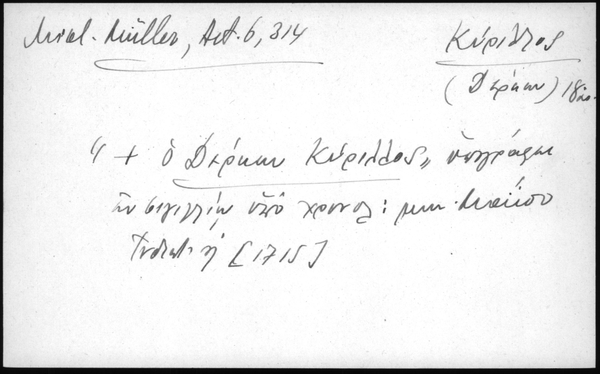 Micel. Müller, Act. 6, 314
Κύριλλος
(Δέρκων) 18ος
" + ὁ Δέρκων Κύριλλος,, ὑπογράφει
ἐν σιγιλλίῳ ὑπὸ χρονολ: μην. Μαΐου
Ἰνδικτ. η [1715]